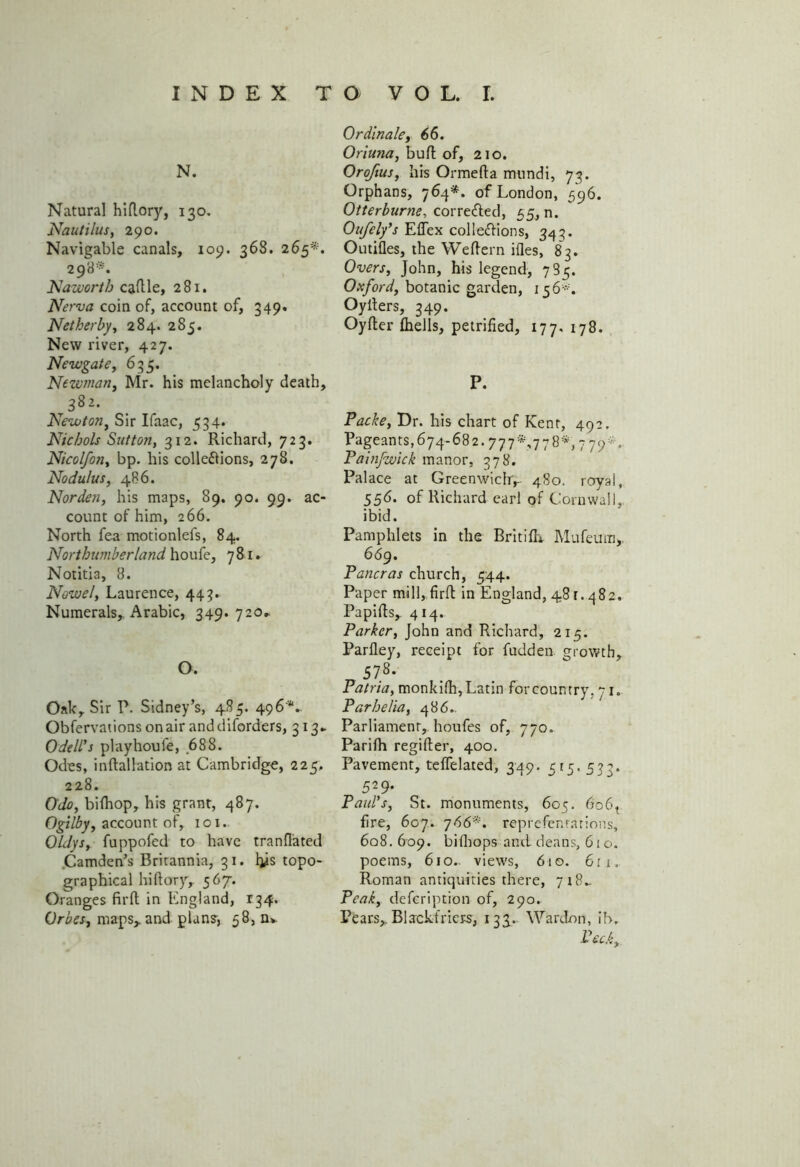 INDEX TO VOL. I.
N.
Natural hiſtory, 130.
Nautilus, 290.
Navigable canals, 109. 368. 265*.
298*.
Naworth caſtle, 281.
Nerva coin of, account of, 349.
Netherby, 284. 285.
New river, 427.
Newgate, 635.
Newman, Mr. his melancholy death,
382.
Newton, Sir Iſaac, 534.
Nichols Sutton, 312. Richard, 723.
Nicolſon, bp. his collections, 278.
Nodulus, 486.
Norden, his maps, 89. 90. 99. ac-
count of him, 266.
North ſea motionleſs, 84.
Northumberland houſe, 781.
Notitia, 8.
Nowel, Laurence, 443.
Numerals, Arabic, 349. 720.
O.
Oak, Sir P. Sidney's, 485. 496*.
Obſervations on air and diſorders, 313.
Odell's playhouſe, 688.
Odes, inſtallation at Cambridge, 225.
228.
Odo, biſhop, his grant, 487.
Ogilby, account of, 101.
Oldys, ſuppoſed to have tranſlated
Camden's Britannia, 31. his topo-
graphical hiſtory, 567.
Oranges firſt in England, 134.
Orbes, maps, and plans, 58, n.
Ordinale, 66.
Oriuna, buſt of, 210.
Oroſius, his Ormeſta mundi, 73.
Orphans, 764*. of London, 596.
Otterburne, corrected, 55, n.
Ouſely's Eſſex collections, 343.
Outiſles, the Weſtern iſles, 83.
Overs, John, his legend, 785.
Oxford, botanic garden, 156*.
Oyſters, 349.
Oyſter ſhells, petrified, 177. 178.
P.
Packe, Dr. his chart of Kent, 492.
Pageants, 674-682. 777*, 778*, 779*.
Painſwick manor, 378.
Palace at Greenwich, 480. royal,
556. of Richard earl of Cornwall,
ibid.
Pamphlets in the Britiſh Muſeum,
669.
Pancras church, 544.
Paper mill, firſt in England, 481. 482.
Papiſts, 414.
Parker, John and Richard, 215.
Parſley, receipt for ſudden growth,
578.
Patria, monkiſh, Latin for country, 71.
Parhelia, 486.
Parliament, houſes of, 770.
Pariſh regiſter, 400.
Pavement, teſſelated, 349. 515. 533.
529.
Paul's, St. monuments, 605. 606,
fire, 607. 766*. repreſentations,
608. 609. biſhops and deans, 610.
poems, 610. views, 610. 611.
Roman antiquities there, 718.
Peak, deſcription of, 290.
Pears, Blackfriers, 133. Wardon, ib.
Peck,